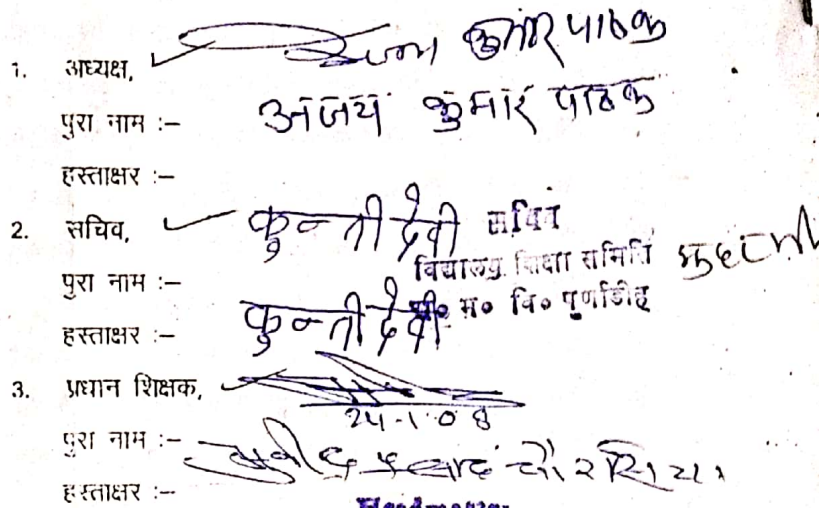 1. अध्यक्ष, कुमार पाठक
पुरा नाम :– अजय कुमार पाठक
हस्ताक्षर :–
2. सचिव, कुन्ती देवी सचिव
विद्यालय शिक्षा समिति
पुरा नाम :–
म० वि० पूर्णाडीह
हस्ताक्षर :– कुन्ती देवी
3. प्रधान शिक्षक,
24-1-08
पुरा नाम :– प्रसाद चौरसिया
हस्ताक्षर :–
Headmaster